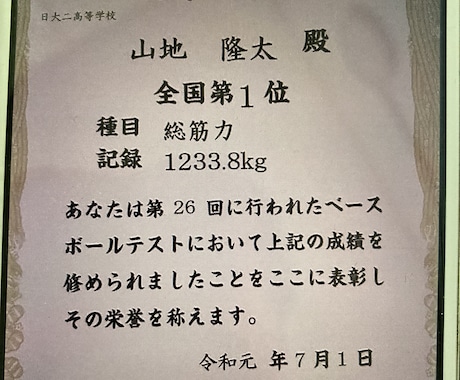 日大二高等学校
山地 隆太 殿
全国第1位
種目 総筋力
記録 1233.8kg
あなたは第 26 回に行われたベース
ボールテストにおいて上記の成績を
修められましたことをここに表彰し
その栄誉を称えます。
令和元 年7月1日